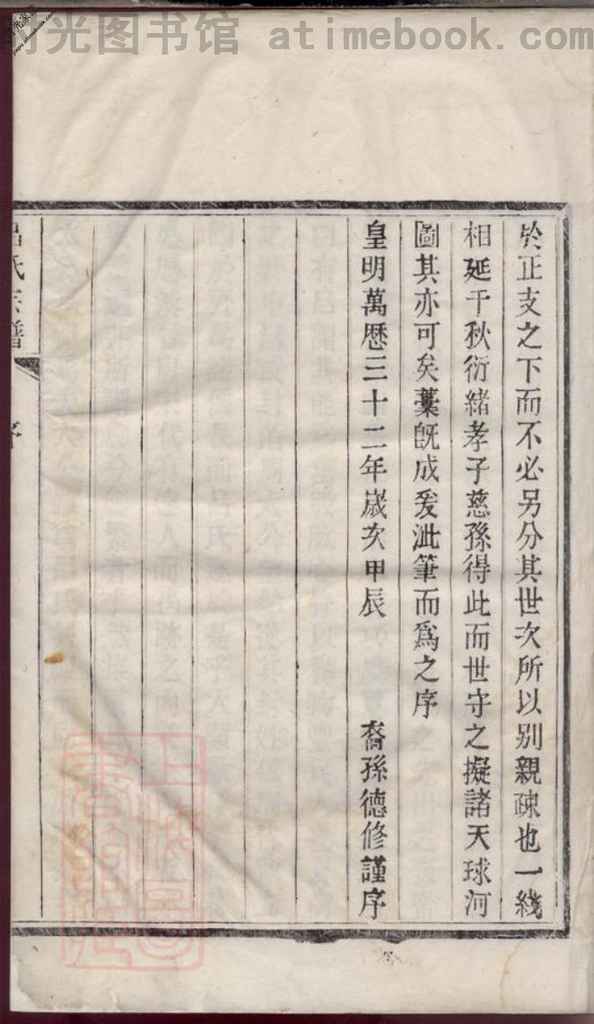 时光图书馆 atimebook.com
於正支之下而不必另分其世次所以别親疎也一綫
相延千秋衍緒孝子慈孫得此而世守之擬諸天球河
圖其亦可矣藁旣成爰泚筆而爲之序
皇明萬歷三十二年歲次甲辰 裔孫德修謹序
吕氏宗譜 序